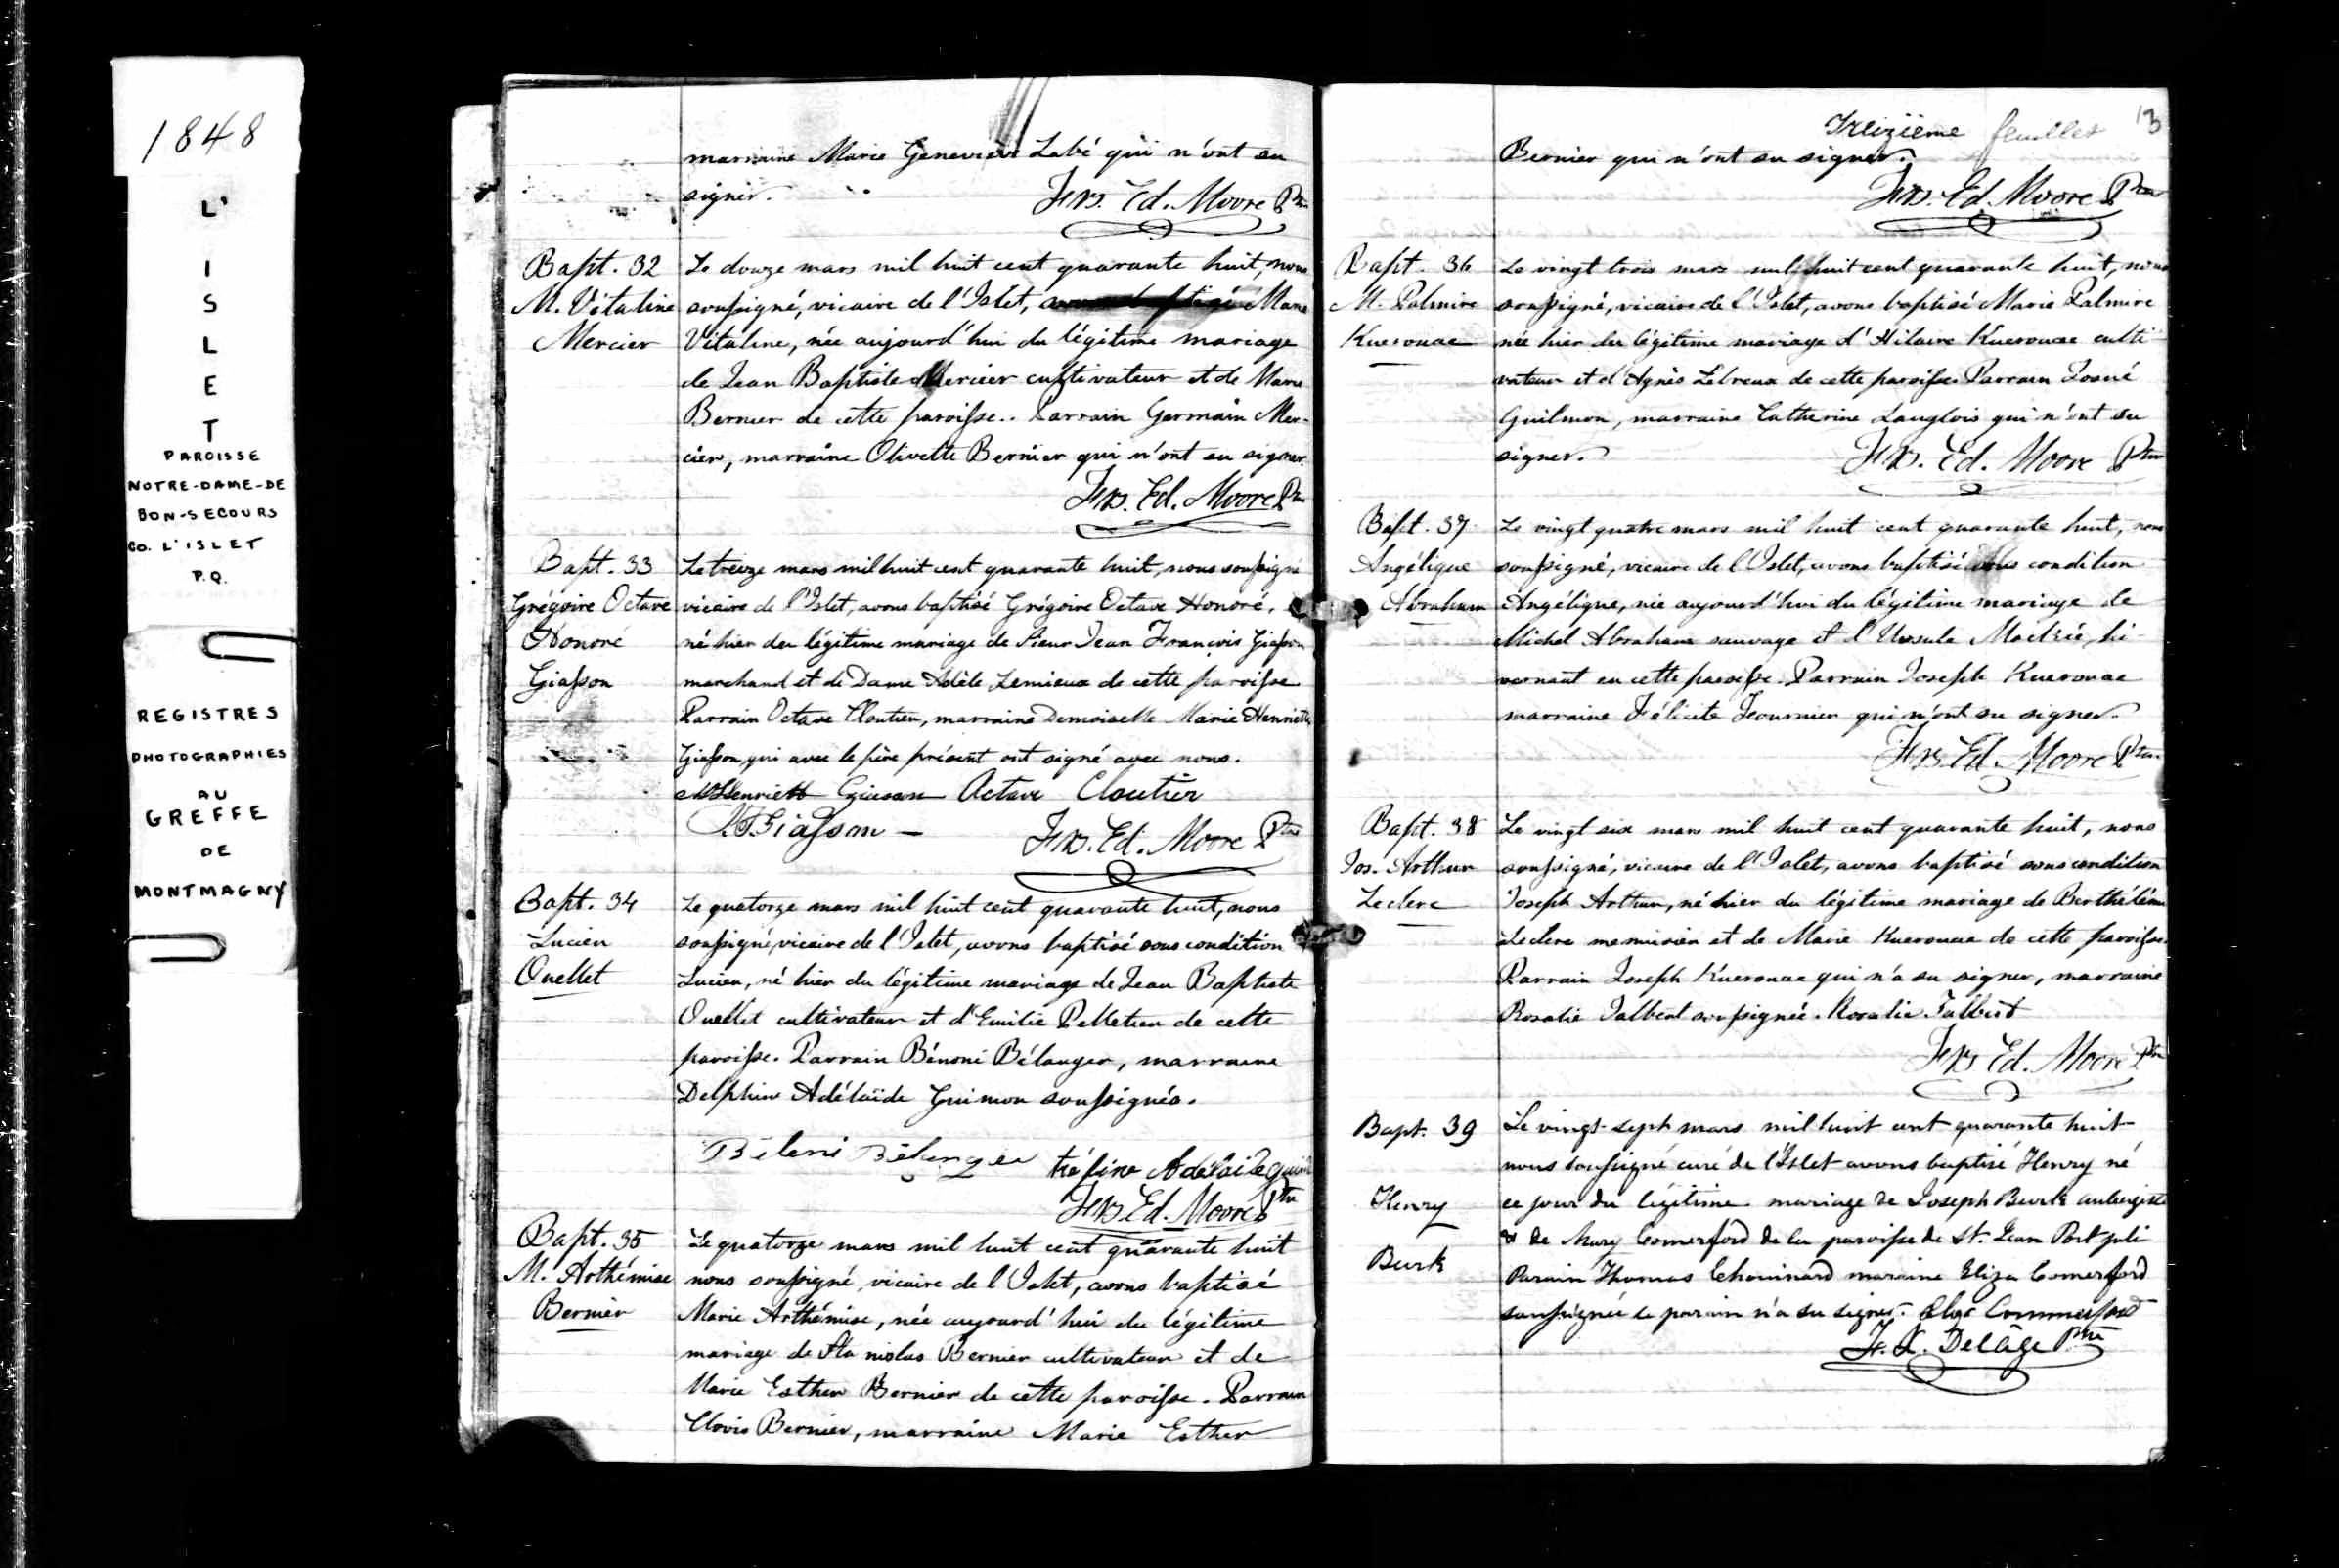 1848
L'
I
S
L
E
T
PAROISSE
NOTRE-DAME-DE
BON-SECOURS
CO. L'ISLET
P.Q.
REGISTRES
PHOTOGRAPHIES
AU
GREFFE
DE
MONTMAGNY
marraine Marie Geneviève Labé qui n'ont su
signer.
Frs. Ed. Moore Ptre
Bapt. 32
M. Vitaline
Mercier
Le douze mars mil huit cent quarante huit, nous
soussigné, vicaire de l'Islet, avons baptisé Marie
Vitaline, née aujourd'hui du légitime mariage
de Jean Baptiste Mercier cultivateur et de Marie
Bernier de cette paroisse.. Parrain Germain Mer-
cier, marraine Olivette Bernier qui n'ont su signer.
Frs. Ed. Moore Ptre
Bapt. 33
Grégoire Octave
Honoré
Giasson
Le treize mars mil huit cent quarante huit, nous soussigné
vicaire de l'Islet, avons baptisé Grégoire Octave Honoré,
né hier du légitime mariage de Sieur Jean François Giasson
marchand et de Dame Adèle Lemieux de cette paroisse
Parrain Octave Cloutier, marraine Demoiselle Marie Henriette
Giasson qui avec le père présent ont signé avec nous.
Henriett Giasson Octave Cloutier
Giasson
Frs. Ed. Moore Ptre
Bapt. 34
Lucien
Ouellet
Le quatorze mars mil huit cent quarante huit, nous
soussigné, vicaire de l'Islet, avons baptisé sous condition
Lucien, né hier du légitime mariage de Jean Baptiste
Ouellet cultivateur et d'Emilie Pelletier de cette
paroisse. Parrain Bénoni Bélanger, marraine
Delphine Adélaïde Guimon soussignés.
Béleni Bélanger
Frs. Ed. Moore Ptre
Bapt. 35
M. Arthémise
Bernier
Le quatorze mars mil huit cent quarante huit
nous soussigné, vicaire de l'Islet, avons baptisé
Marie Arthémise, née aujourd'hui du légitime
mariage de Stanislas Bernier cultivateur et de
Marie Esther Bernier de cette paroisse. Parrain
Clovis Bernier, marraine Marie Esther
Treizième feuillet 13
Bernier qui n'ont su signer.
Frs. Ed. Moore Ptre
Bapt. 36
M. Palmire
Kuerouac
Le vingt trois mars mil huit cent quarante huit, nous
soussigné, vicaire de l'Islet, avons baptisé Marie Palmire
née hier du légitime mariage d'Hilaire Kuerouac culti-
vateur et d'Agnès Lebreux de cette paroisse. Parrain Josué
Guilmon, marraine Catherine Langlois qui n'ont su
signer.
Frs. Ed. Moore Ptre
Bapt. 37
Angélique
Abraham
Le vingt quatre mars mil huit cent quarante huit, nous
soussigné, vicaire de l'Islet, avons baptisé sous condition
Angélique, née aujourd'hui du légitime mariage de
Michel Abraham sauvage et d'Ursule hi-
vernant en cette paroisse. Parrain Joseph Kuerouac
marraine Félicité Fournier qui n'ont su signer.
Frs. Ed. Moore Ptre
Bapt. 38
Jos. Arthur
Leclerc
Le vingt six mars mil huit cent quarante huit, nous
soussigné, vicaire de l'Islet, avons baptisé sous condition
Joseph Arthur, né hier du légitime mariage de Barthélémi
Leclerc menuisier et de Marie Kuerouac de cette paroisse.
Parrain Joseph Kuerouac qui n'a su signer, marraine
Rosalie Talbert soussignée. Rosalie Talbert
Frs Ed. Moore Ptre
Bapt. 39
Henry
Burk
Le vingt-sept mars mil huit cent quarante huit
nous soussigné curé de l'Islet avons baptisé Henry né
ce jour du légitime mariage de Joseph Burk aubergiste
& de Mary Comerford de la paroisse de St. Jean Port joli
Parain Thomas Chouinard maraine Eliza Comerford
soussignée le parain n'a su signer. Eliza Commerford
F. X. Delâge Ptre